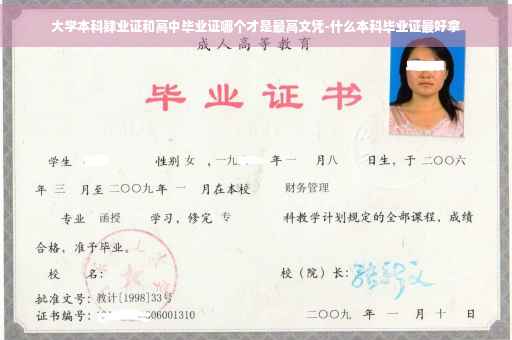 大学本科肄业证和高中毕业证哪个才是最高文凭-什么本科毕业证最好拿
成人高等教育
毕业证书
学生 性别 女 ，一九 年 一 月八 日生，于 二〇〇六
年 三 月至 二〇〇九 年 一 月在本校 财务管理
专业 函授 学习，修完 专 科教学计划规定的全部课程，成绩
合格，准予毕业。
校 名： 校（院）长：
批准文号：教计[1998]33号
证书编号： 06001310 二〇〇九 年 一 月 十 日